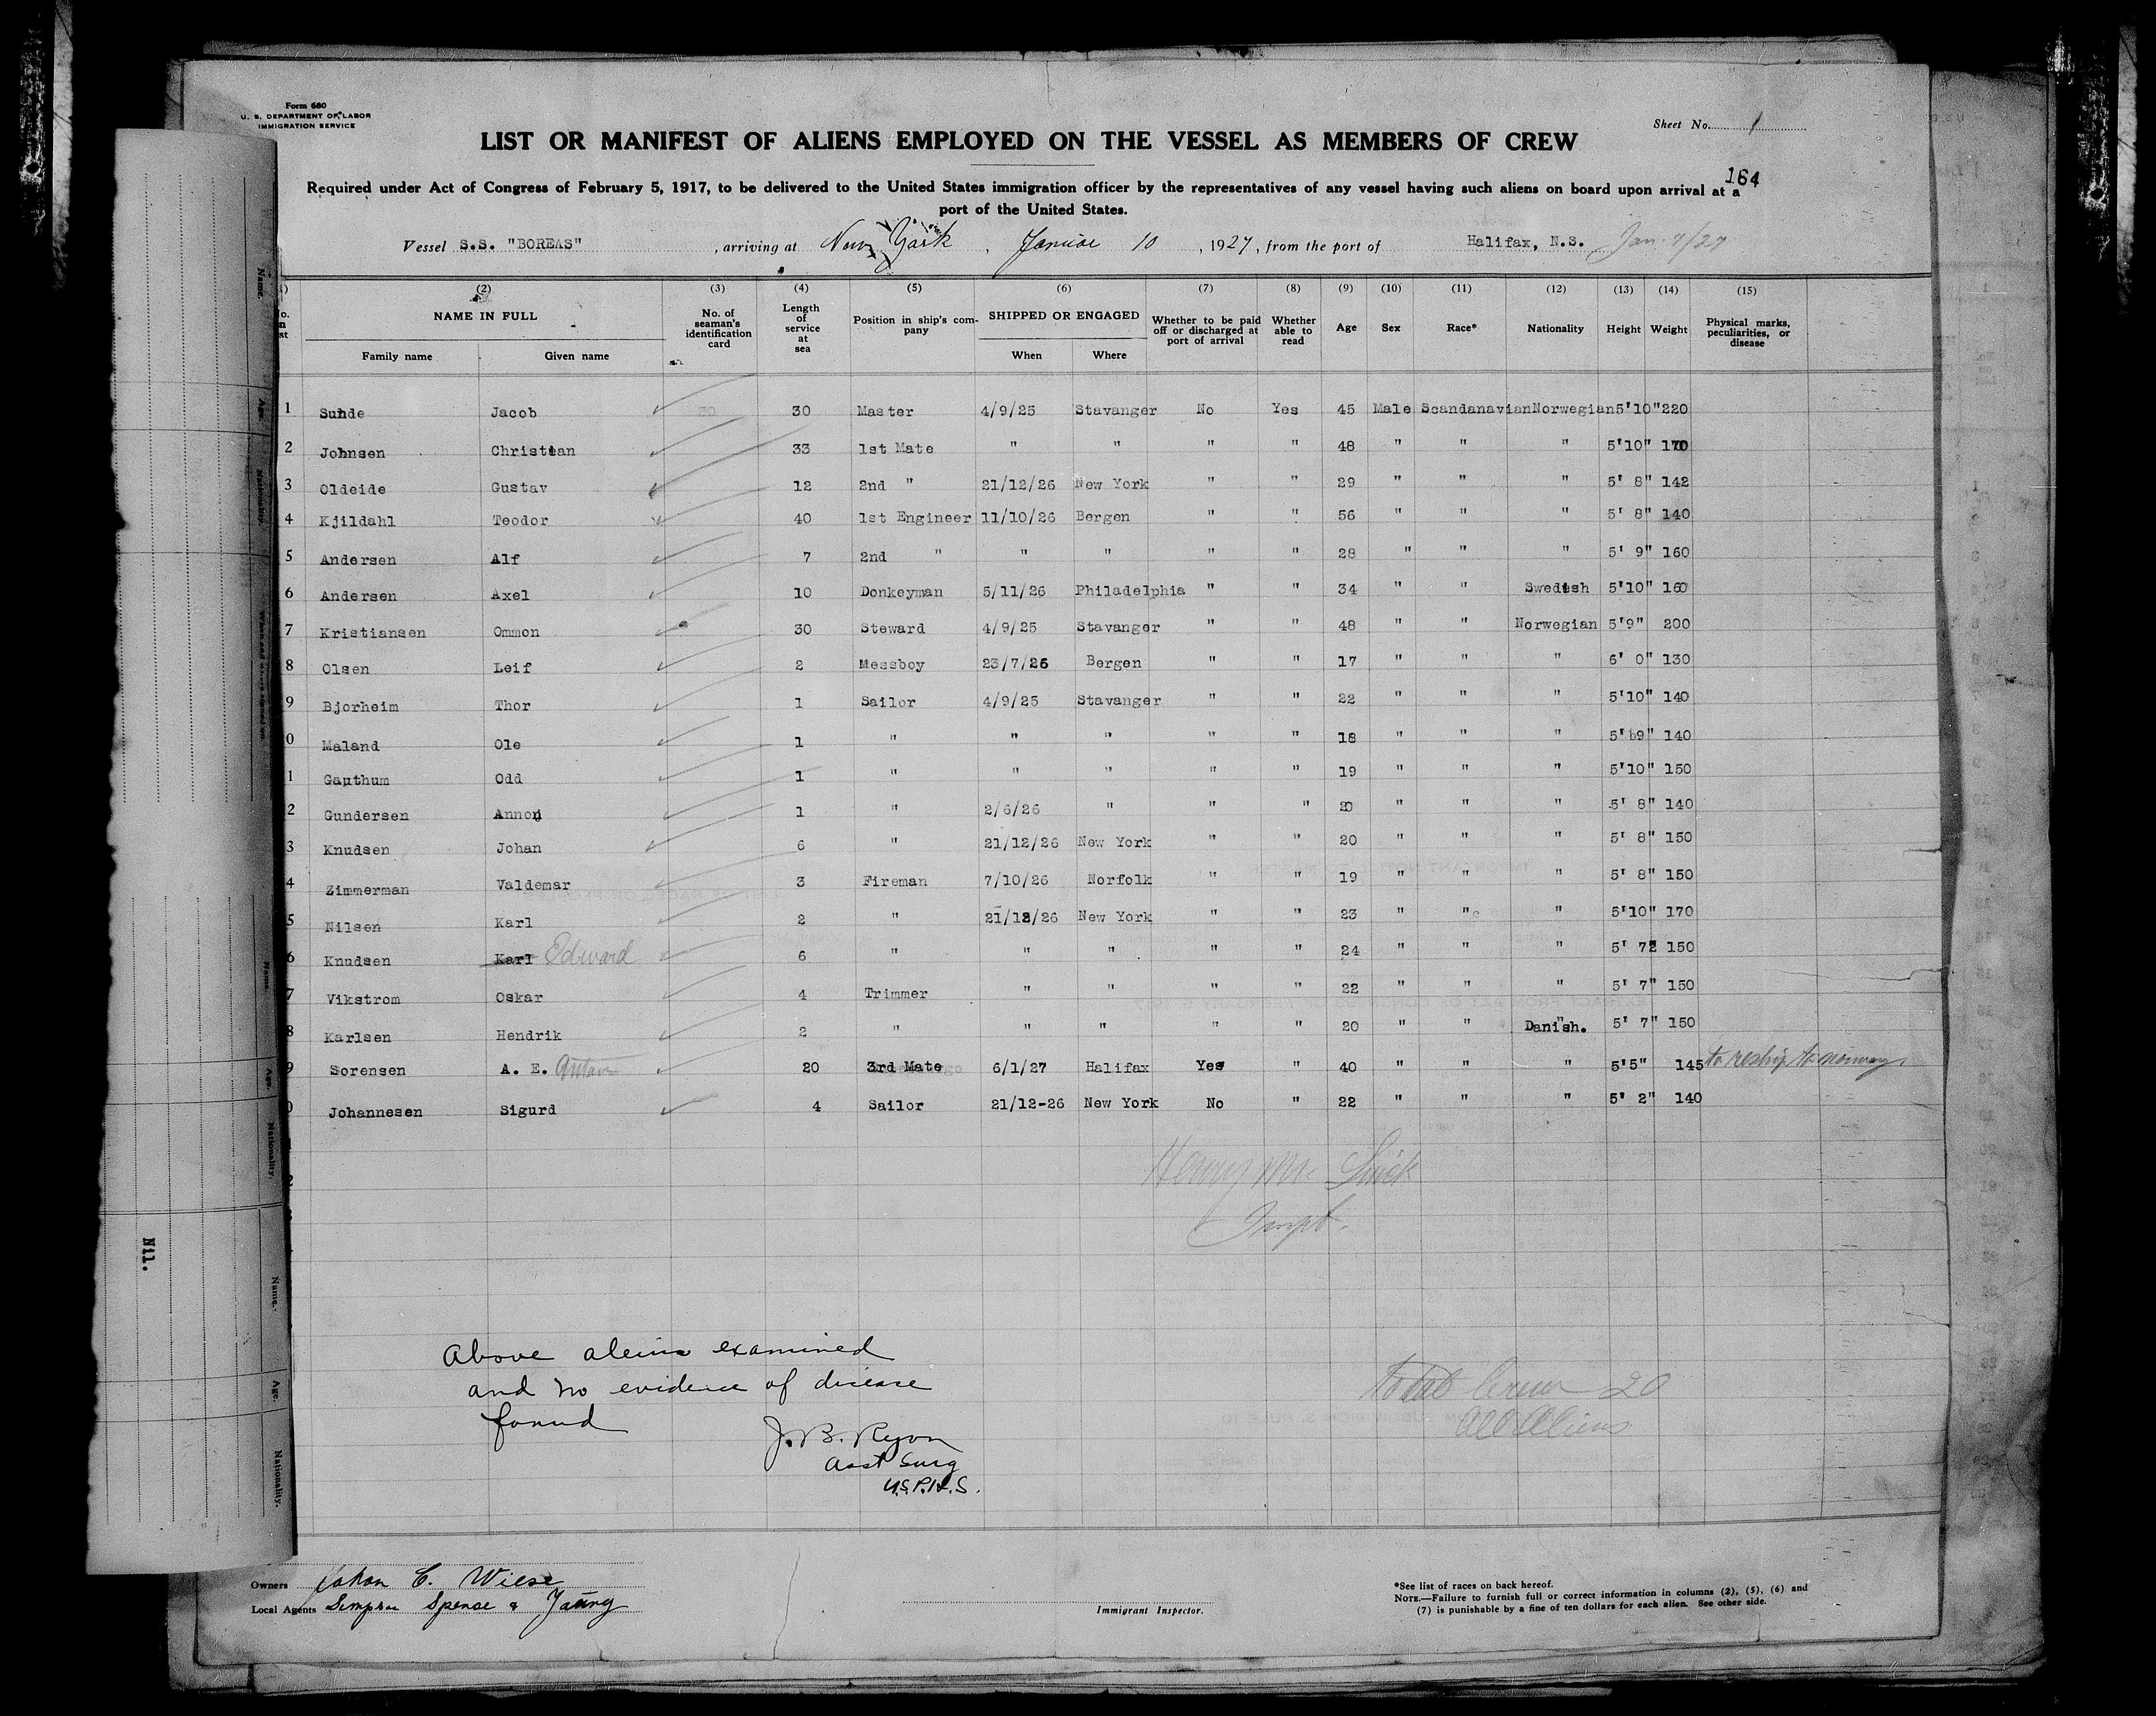 Form 680
U. S. DEPARTMENT OF LABOR
IMMIGRATION SERVICE
Sheet No. 1
LIST OR MANIFEST OF ALIENS EMPLOYED ON THE VESSEL AS MEMBERS OF CREW
164
Required under Act of Congress of February 5, 1917, to be delivered to the United States immigration officer by the representatives of any vessel having such aliens on board upon arrival at a
port of the United States.
Vessel S.S. "BOREAS", arriving at New York, 10, 1927, from the port of Halifax, N.S. Jan. 7/27
(2) (3) (4) (5) (6) (7) (8) (9) (10) (11) (12) (13) (14) (15)
NAME IN FULL No. of seaman's identification card Length of service at sea Position in ship's company SHIPPED OR ENGAGED Whether to be paid off or discharged at port of arrival Whether able to read Age Sex Race* Nationality Height Weight Physical marks, peculiarities, or disease
Family name Given name When Where
1 Sunde Jacob 30 Master 4/9/25 Stavanger No Yes 45 Male Scandanavian Norwegian 5'10" 220
2 Johnsen Christian 33 1st Mate " " " " 48 " " " 5'10" 170
3 Oldeide Gustav 12 2nd " 21/12/26 New York " " 29 " " " 5' 8" 142
4 Kjildahl Teodor 40 1st Engineer 11/10/26 Bergen " " 56 " " " 5' 8" 140
5 Andersen Alf 7 2nd " " " " " 28 " " " 5' 9" 160
6 Andersen Axel 10 Donkeyman 5/11/26 Philadelphia " " 34 " " Swedish 5'10" 160
7 Kristiansen Ommon 30 Steward 4/9/25 Stavanger " " 48 " " Norwegian 5'9" 200
8 Olsen Leif 2 Messboy 23/7/26 Bergen " " 17 " " " 6' 0" 130
9 Bjorheim Thor 1 Sailor 4/9/25 Stavanger " " 22 " " " 5'10" 140
0 Maland Ole 1 " " " " " 18 " " " 5' 9" 140
1 Gauthum Odd 1 " " " " " 19 " " " 5'10" 150
2 Gundersen 1 " 2/6/26 " " " 20 " " " 5' 8" 140
3 Knudsen Johan 6 " 21/12/26 New York " " 20 " " " 5' 8" 150
4 Zimmerman Valdemar 3 Fireman 7/10/26 Norfolk " " 19 " " " 5' 8" 150
5 Nilsen Karl 2 " 21/12/26 New York " " 23 " " " 5'10" 170
6 Knudsen Karl Edward 6 " " " " " 24 " " " 5' 7 150
7 Vikstrom Oskar 4 Trimmer " " " " 22 " " " 5' 7" 150
8 Karlsen Hendrik 2 " " " " " 20 " " Danish. 5' 7" 150
9 Sorensen A. E. 20 3rd Mate 6/1/27 Halifax Yes " 40 " " " 5'5" 145 to reship to norway.
0 Johannesen Sigurd 4 Sailor 21/12-26 New York No " 22 " " " 5' 2" 140
Inspt.
Above aleins examined
and no evidence of disease
found
J. B. Ryon
Asst Surg
U.S.P.H.S.
Total Crew 20
All Aliens
Owners C. Wiese
Local Agents Simpson Spence & Young
Immigrant Inspector.
*See list of races on back hereof.
NOTE.—Failure to furnish full or correct information in columns (2), (5), (6) and
(7) is punishable by a fine of ten dollars for each alien. See other side.
Name.
Age.
Nationality.
Name.
Age.
Nationality.
Name.
Age.
Nationality.
Nil.